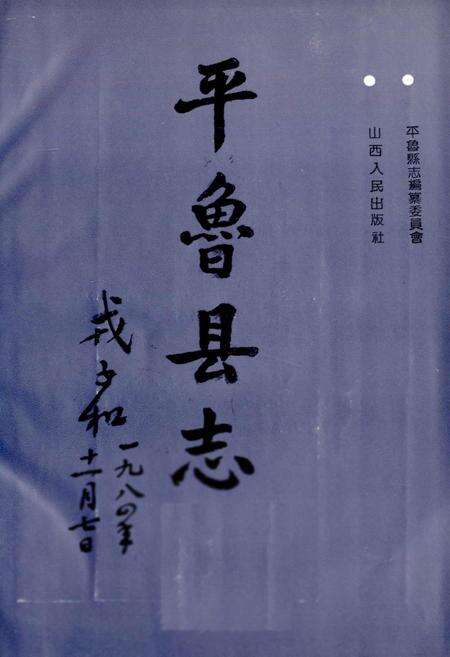 平魯縣志編纂委員會
山西人民出版社
平魯县志
戎子和
一九八四年
十一月七日